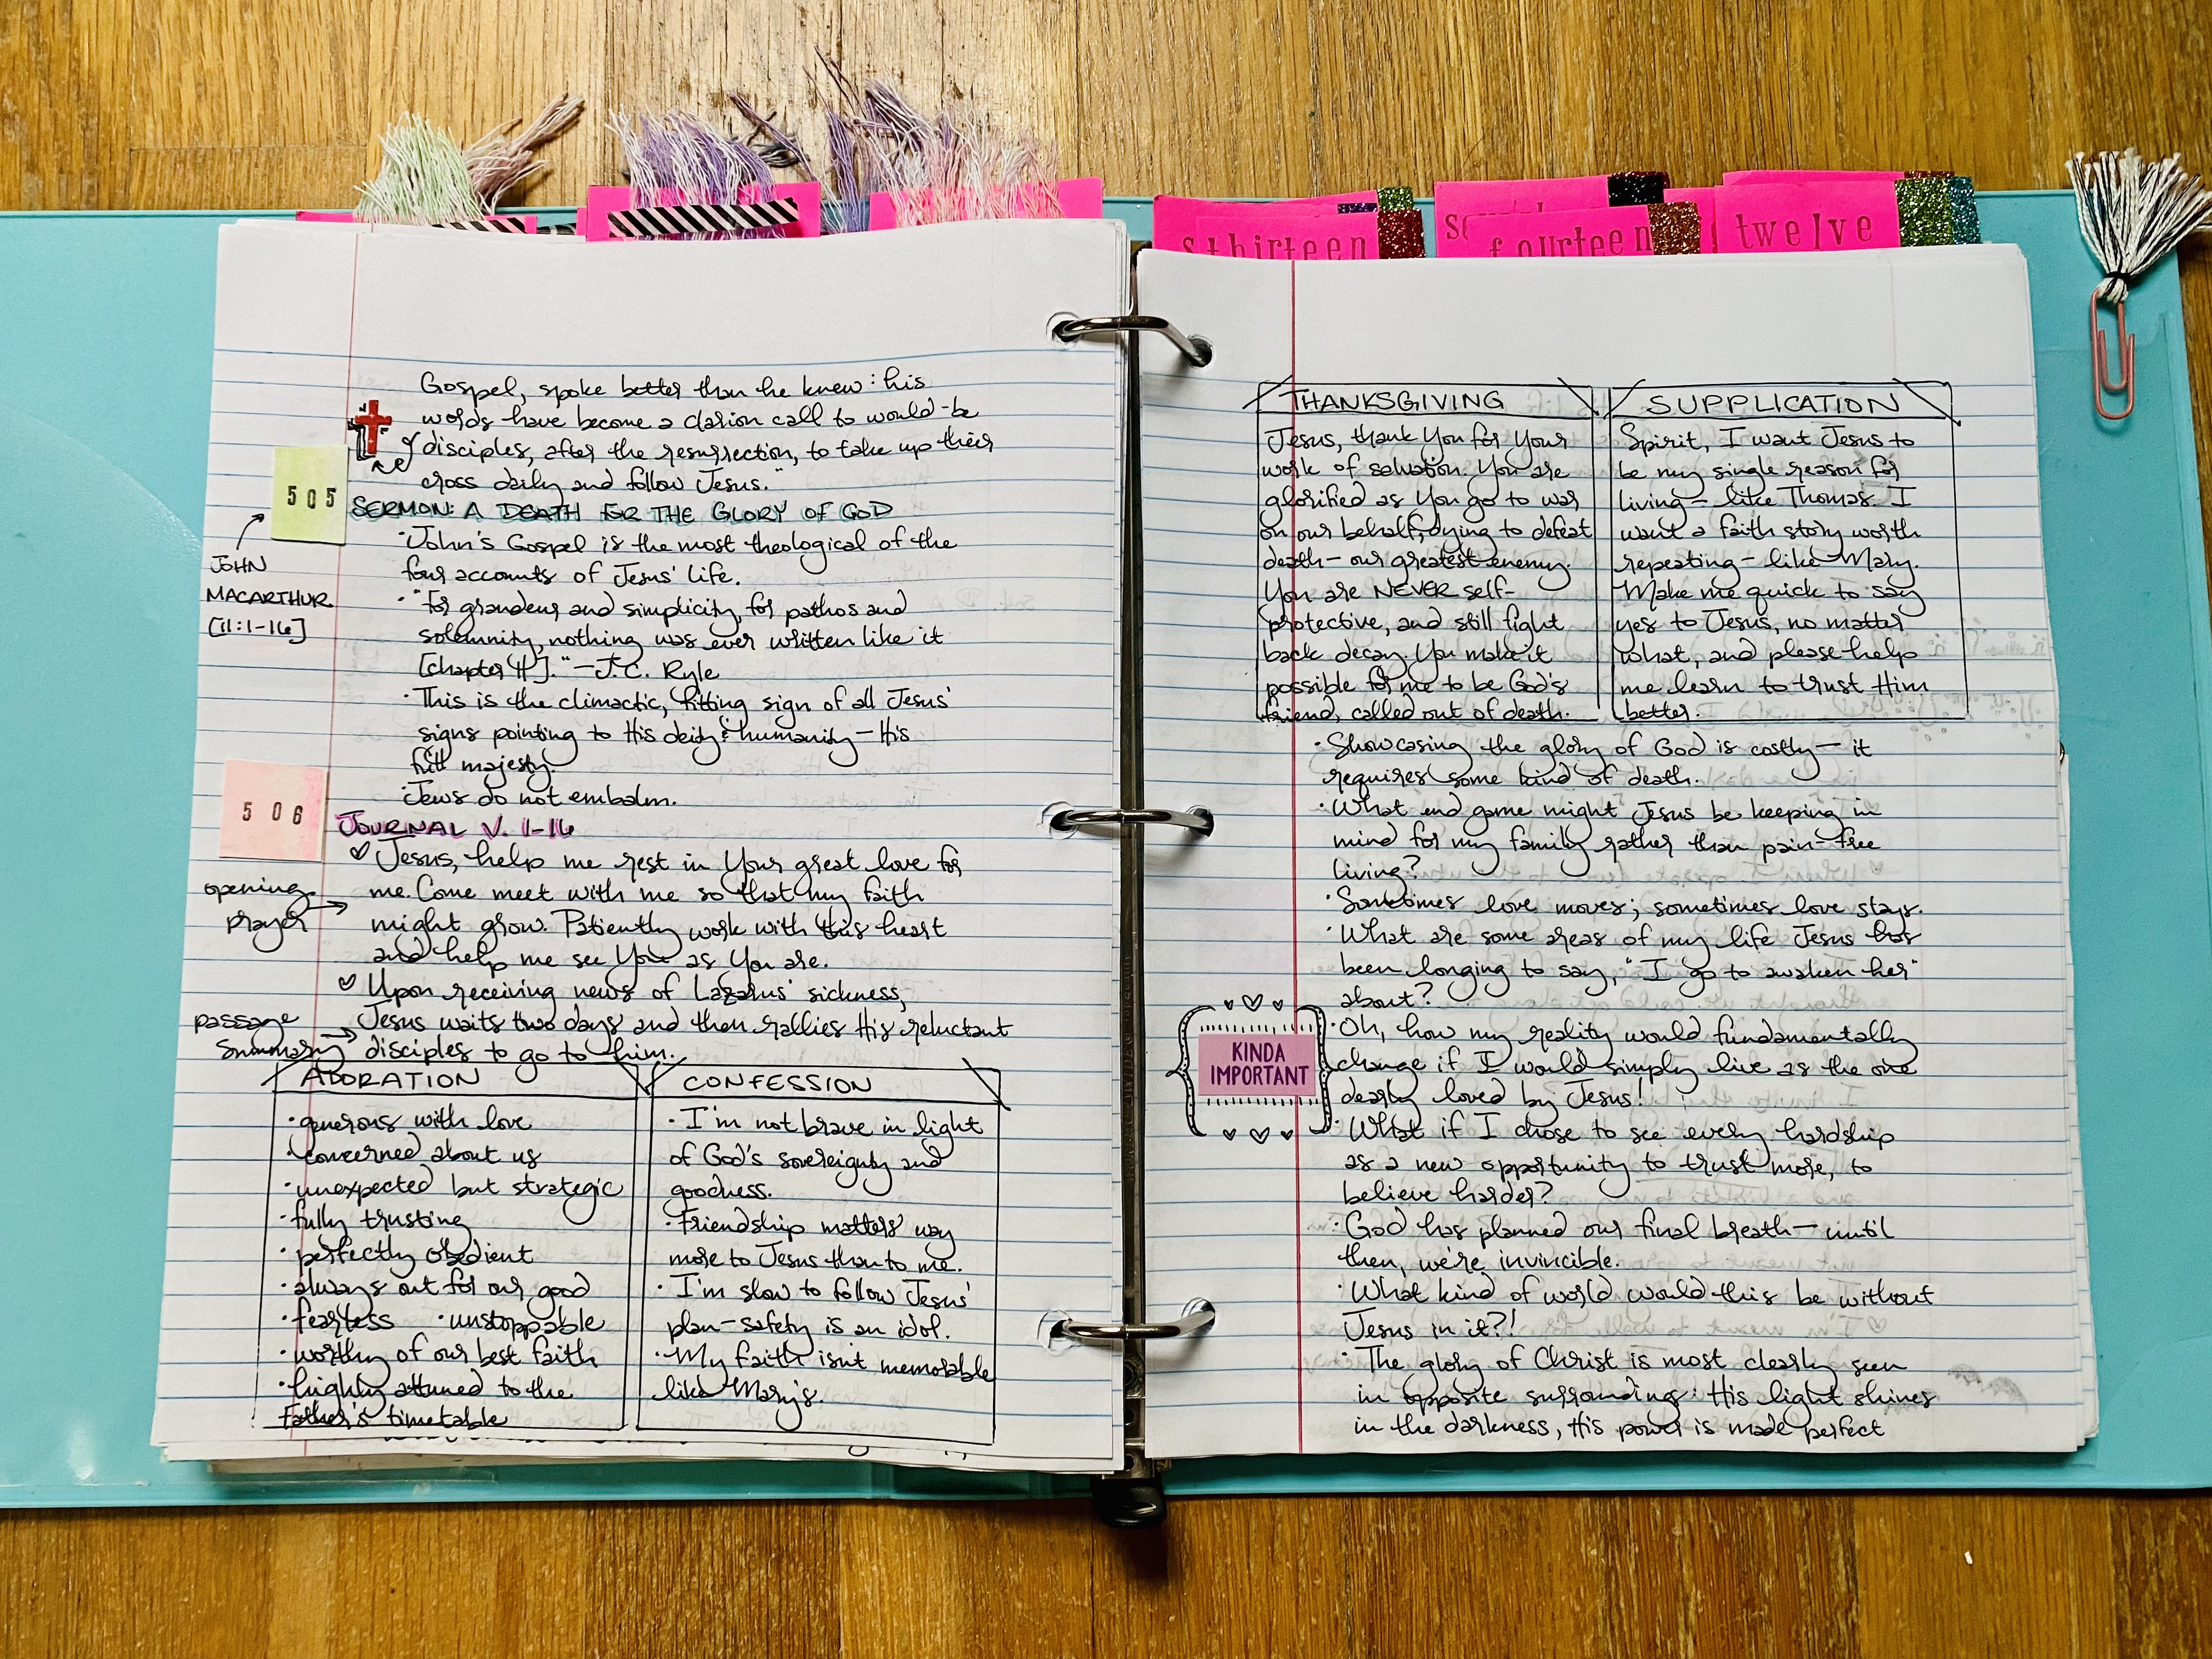 sthirteen
fourteen
twelve
Gospel, spoke better than he knew: his
words have become a clarion call to would-be
disciples, after the resurrection, to take up their
cross daily and follow Jesus."
505
JOHN
MACARTHUR
[11:1-16]
SERMON: A DEATH FOR THE GLORY OF GOD
·John's Gospel is the most theological of the
four accounts of Jesus' life.
·"For grandeur and simplicity, for pathos and
solemnity, nothing was ever written like it
[chapter 11]." —J.C. Ryle
·This is the climactic, fitting sign of all Jesus'
signs pointing to His deity & humanity—His
full majesty.
·Jews do not embalm.
506
JOURNAL V. 1-16
opening
prayer
♡ Jesus, help me rest in Your great love for
me. Come meet with me so that my faith
might grow. Patiently work with this heart
and help me see You as You are.
passage
summary
♡ Upon receiving news of Lazarus' sickness,
Jesus waits two days and then rallies His reluctant
disciples to go to him.
ADORATION
·generous with love
·concerned about us
·unexpected but strategic
·fully trusting
·perfectly obedient
·always out for our good
·fearless ·unstoppable
·worthy of our best faith
·highly attuned to the
Father's timetable
CONFESSION
·I'm not brave in light
of God's sovereignty and
goodness.
·Friendship matters way
more to Jesus than to me.
·I'm slow to follow Jesus'
plan—safety is an idol.
·My faith isn't memorable
like Mary's.
THANKSGIVING
Jesus, thank You for Your
work of salvation. You are
glorified as You go to war
on our behalf, dying to defeat
death—our greatest enemy.
You are NEVER self-
protective, and still fight
back decay. You make it
possible for me to be God's
friend, called out of death.
SUPPLICATION
Spirit, I want Jesus to
be my single reason for
living—like Thomas. I
want a faith story worth
repeating—like Mary.
Make me quick to say
yes to Jesus, no matter
what, and please help
me learn to trust Him
better.
·Showcasing the glory of God is costly—it
requires some kind of death.
·What end game might Jesus be keeping in
mind for my family rather than pain-free
living?
·Sometimes love moves; sometimes love stays.
·What are some areas of my life Jesus has
been longing to say, "I go to awaken her"
about?
KINDA
IMPORTANT
·Oh, how my reality would fundamentally
change if I would simply live as the one
dearly loved by Jesus!
·What if I chose to see every hardship
as a new opportunity to trust more, to
believe harder?
·God has planned our final breath—until
then, we're invincible.
·What kind of world would this be without
Jesus in it?!
·The glory of Christ is most clearly seen
in opposite surrounding: His light shines
in the darkness, His power is made perfect